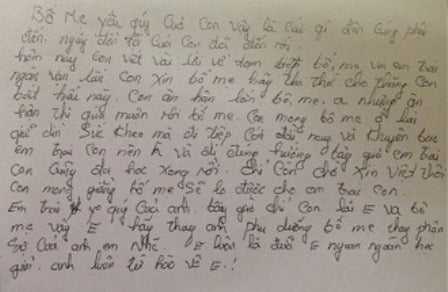 Bố Mẹ yêu quý Của Con vậy là Cái gì đến Cũng phải
đến. ngày đời tối Của Con đã đến rồi.
hôm nay Con viết vài lời về dạm biệt bố, mẹ và em trai
ngàn vạn lần Con Xin bố mẹ hãy tha thứ cho thằng Con
bất hiếu này. Con ân hận lắm bố, mẹ. nhưng ân
hận thì quá muộn rồi bố mẹ. Con mong bố mẹ ở lại
giữ dìn Sức Khẻo mà đi tiếp Con đải nay và Khuyên bao
em trai Con nên và đi đúng hướng bây giờ em trai
Con Cũng đa học xong rồi. chỉ Con chỗ Xin việc thôi
Con mong rằng bố mẹ Sẽ lo được cho em trai Con.
Em trai yê quý Của anh. bây giờ chỉ Con lải E và bố
mẹ vậy E hãy thay anh phụ dưỡng bố mẹ thay phần
Của anh em Nhé. E luôn là đứa E ngoan ngoãn học
giỏi. anh luôn tử hào về E.!